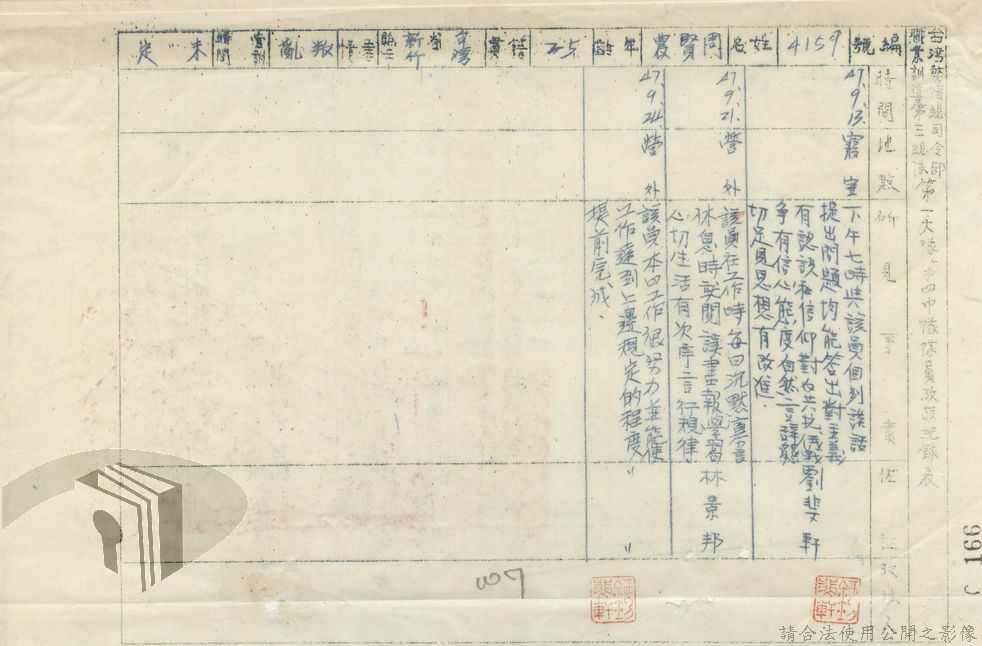 台灣警備總司令部
職業訓導第三總隊第一大隊第四中隊隊員考核記錄表
編號 4159 姓名 周賢農 年齡 25 籍貫 台灣省新竹縣市 案情 叛亂 管訓時間 未定
時間地點 所見事實 佐証
47.9.13. 寢室
下午七時與該員個別談話
提出問題均能答出對主義
有認識和信仰對反共抗俄戰
爭有信心態度自然言辭懇
切足見思想有改進.
劉斐軒
47.9.21. 營外
該員在工作時每日沉默寡言
休息時就閱讀畫報學習
心切生活有次序言行規律.
林景邦
47.9.24. 營外
該員本日工作很努力並能使
工作達到上邊規定的程度
提前完成.
〃 〃
C 166
107
請合法使用公開之影像